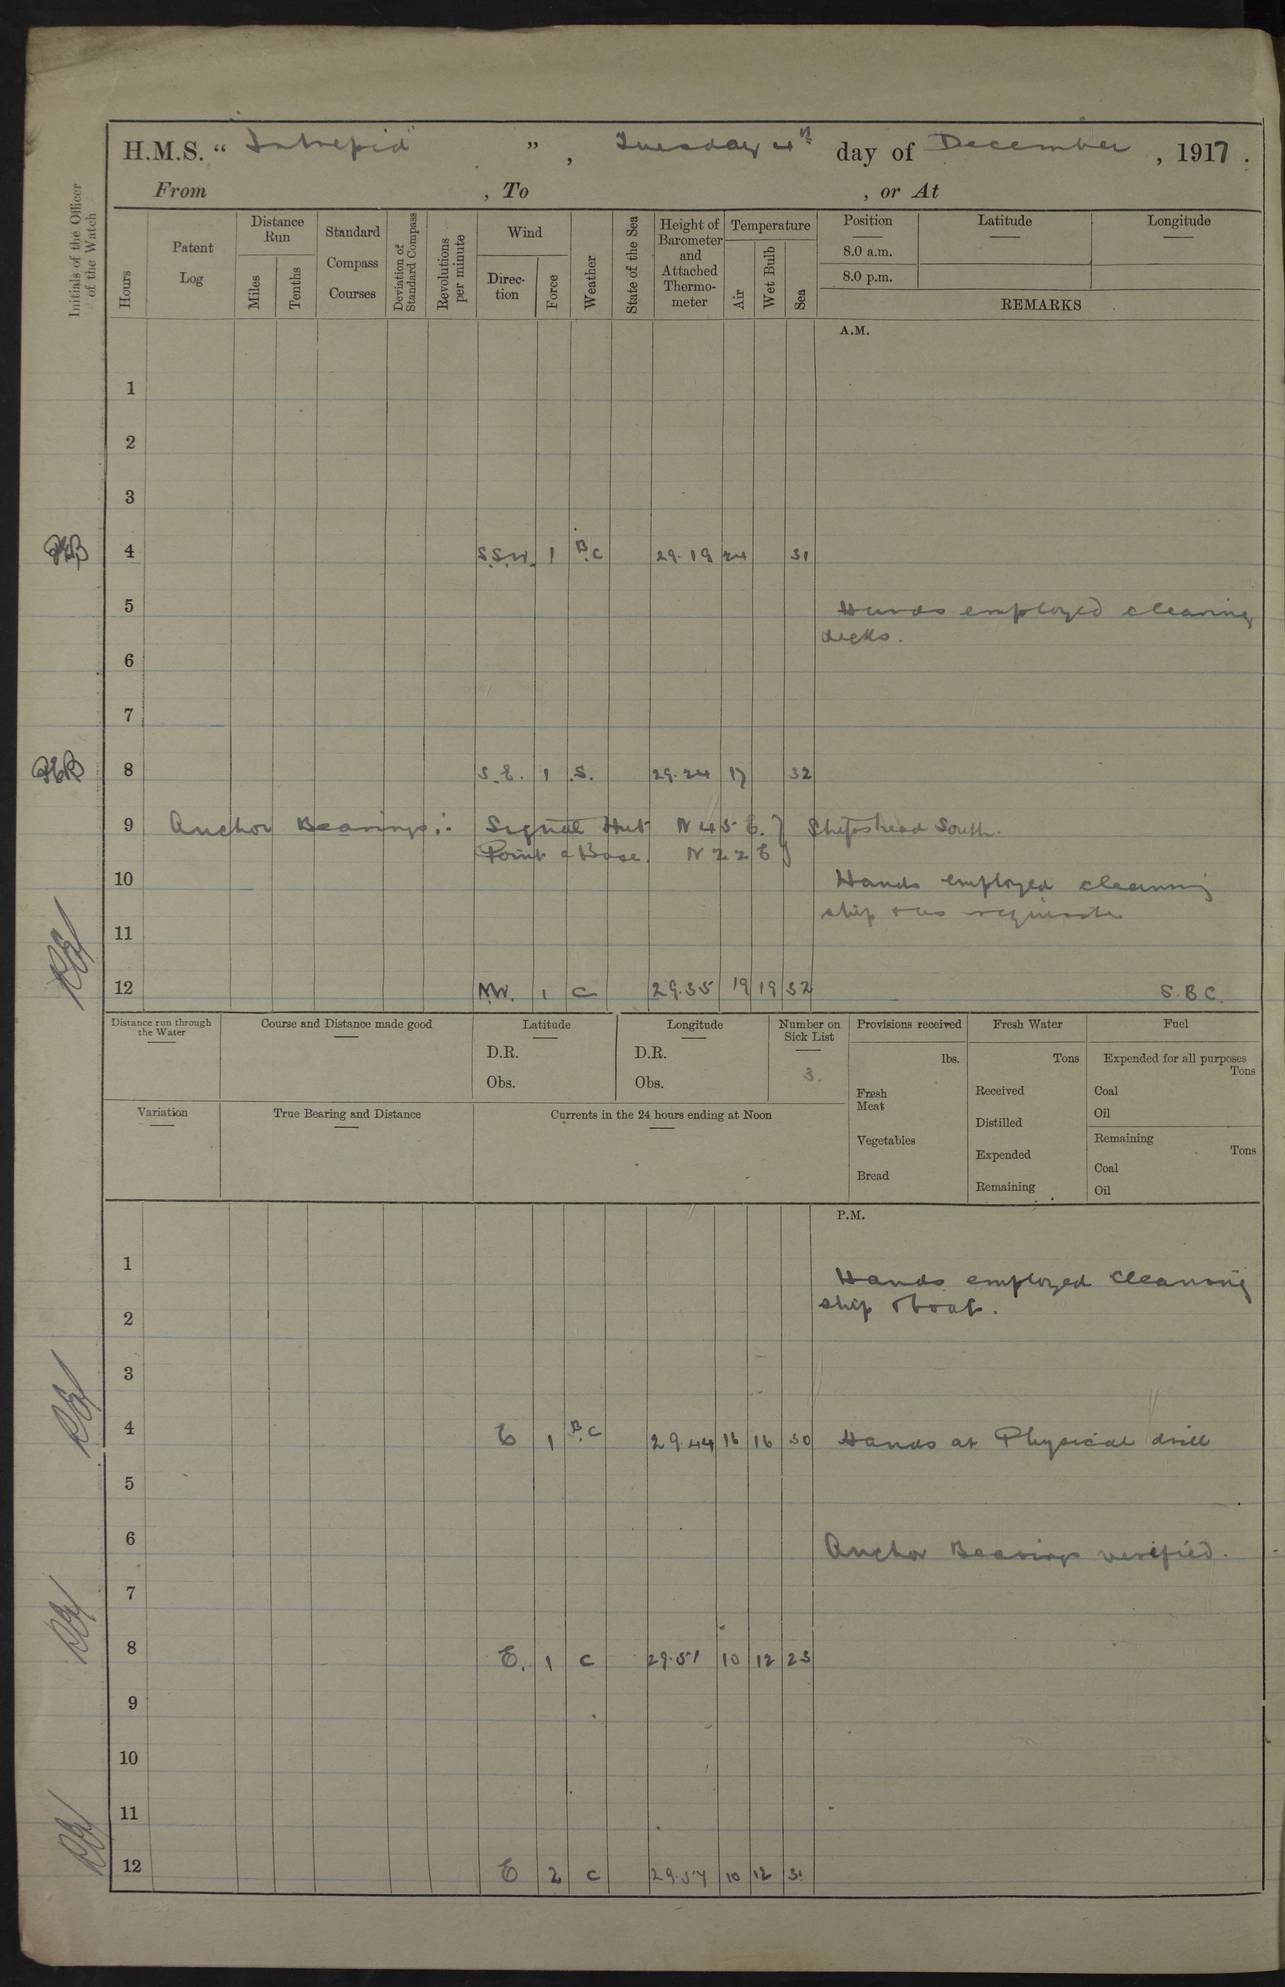 H.M.S. " Intrepid " , Tuesday 4th day of December , 1917 .
From , To , or At
Initials of the Officer of the Watch
Hours
Patent Log
Distance Run
Miles
Tenths
Standard Compass Courses
Deviation of Standard Compass
Revolutions per minute
Wind
Direc-tion
Force
Weather
State of the Sea
Height of Barometer and Attached Thermo-meter
Temperature
Air
Wet Bulb
Sea
Position
8.0 a.m.
8.0 p.m.
Latitude
Longitude
REMARKS
A.M.
1
2
3
4 S.S.W. 1 B.C 29.19 24 31
5 Hands employed cleaning
decks.
6
7
8 S.E. 1 S. 29.24 17 32
9 Anchor Bearings:- Signal Hut N 45 E. } Ship's head South.
Point & Base. N 22 E }
10 Hands employed cleaning
ship & as requisite
11
12 N.W. 1 C 29.35 19 19 32 S.B.C.
Distance run through the Water
Course and Distance made good
Latitude
D.R.
Obs.
Longitude
D.R.
Obs.
Number on Sick List
3.
Provisions received
lbs.
Fresh Meat
Vegetables
Bread
Fresh Water
Tons
Received
Distilled
Expended
Remaining
Fuel
Expended for all purposes
Tons
Coal
Oil
Remaining
Tons
Coal
Oil
Variation
True Bearing and Distance
Currents in the 24 hours ending at Noon
P.M.
1 Hands employed cleaning
ship & boats.
2
3
4 E 1 B.C 29.44 16 16 30 Hands at Physical drill
5
6 Anchor Bearings verified.
7
8 E. 1 C 29.51 10 12 23
9
10
11
12 E 2 C 29.57 10 12 31